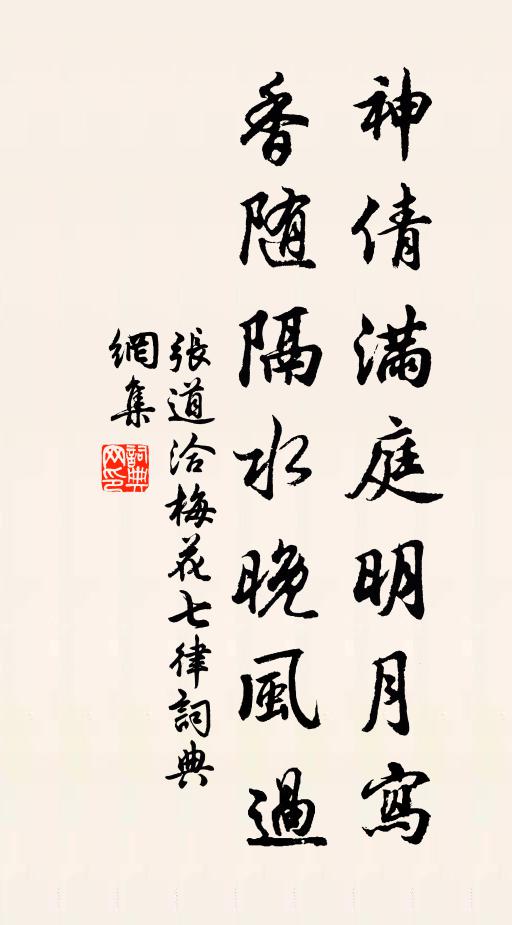 神倩滿庭明月寫
香随隔水晚風過
張道洽梅花七律詞典
網集
詞典
网印